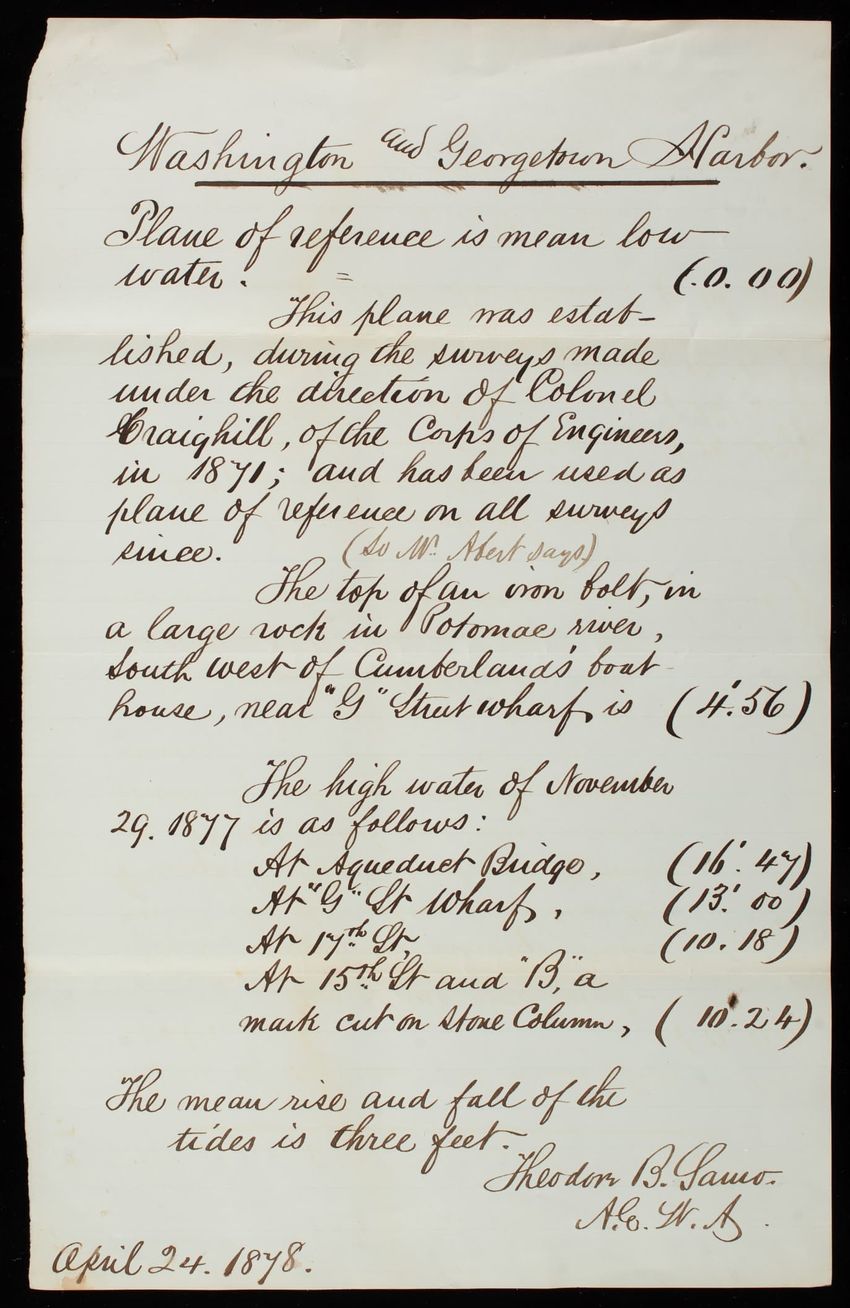 Washington and Georgetown Harbor.
Plane of reference is mean low
water. = (.0.00)
This plane was estab-
lished, during the surveys made
under the direction of Colonel
Craighill, of the Corps of Engineers,
in 1871; and has been used as
plane of reference on all surveys
since. (So Mr. Abert says)
The top of an iron bolt, in
a large rock in Potomac river,
South west of Cumberland's boat
house, near "G" Street wharf, is (4'.56)
The high water of November
29. 1877 is as follows:
At Aqueduct Bridge, (16'.47)
At "G" St Wharf, (13'.00)
At 17th St, (10.18)
At 15th St and "B," a
mark cut on stone Column, (10'.24)
The mean rise and fall of the
tides is three feet.
Theodore B. Samo.
April 24. 1878.